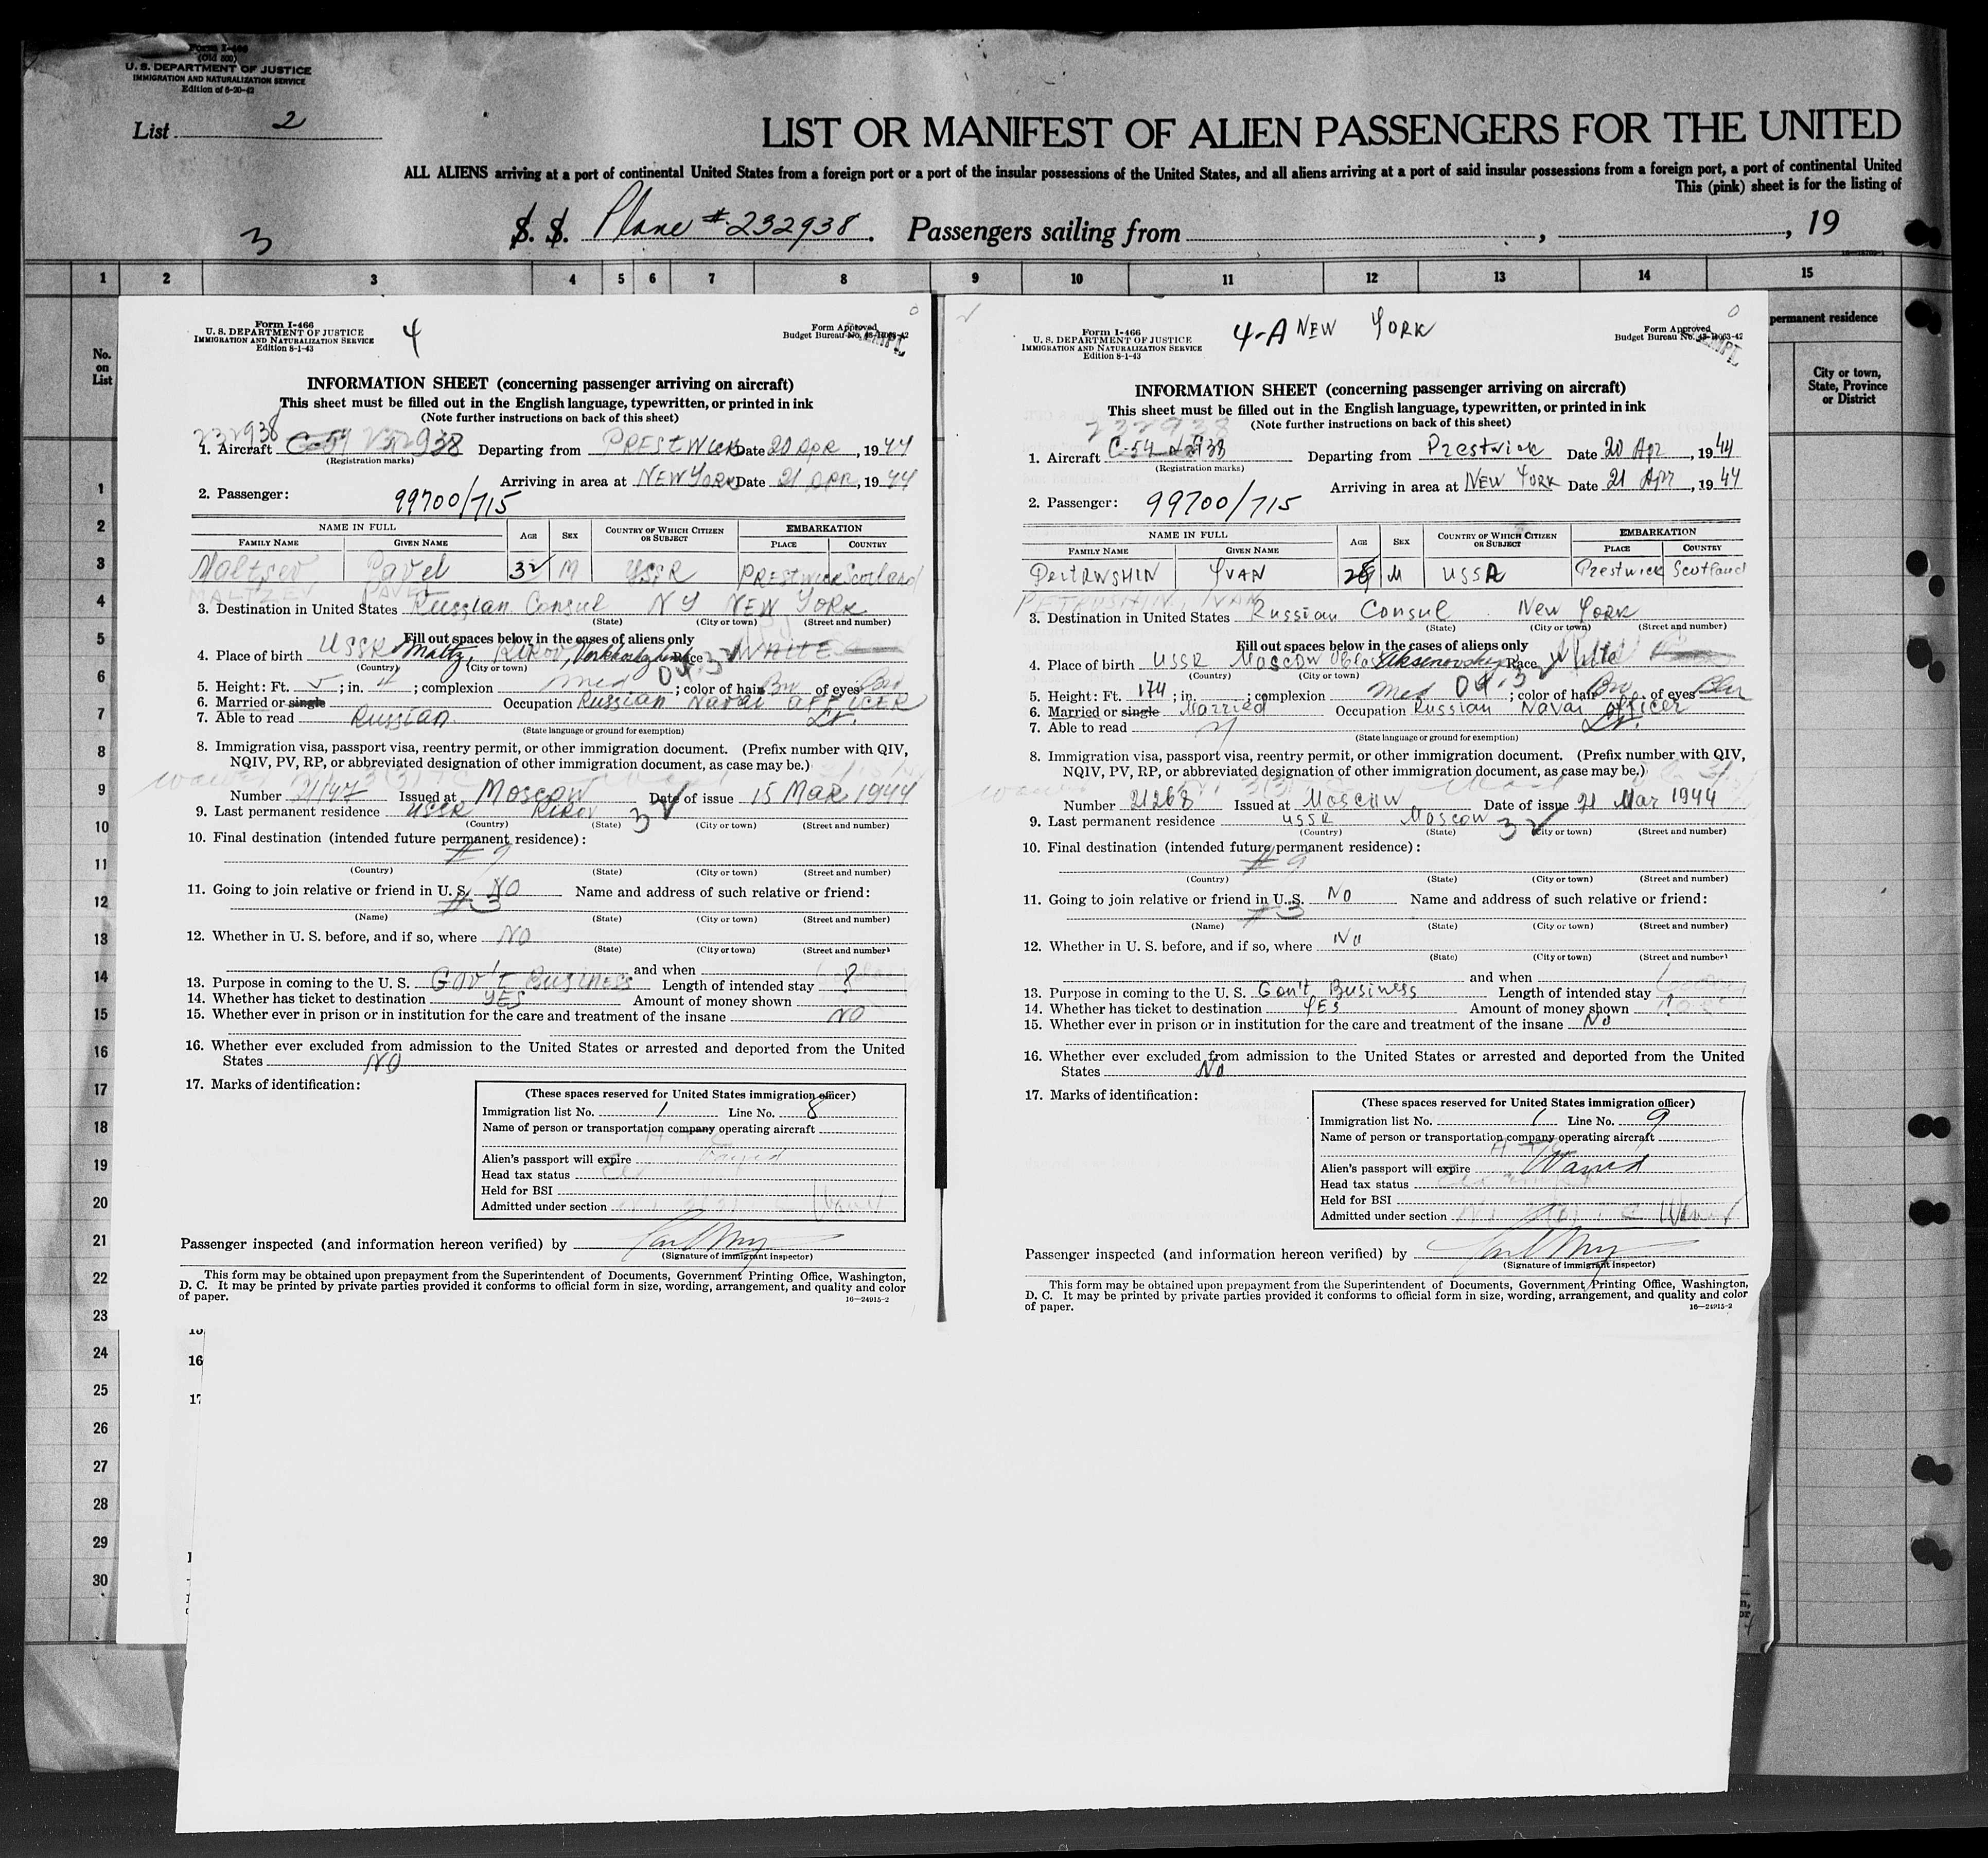 Form I-466
(Old 500)
U. S. DEPARTMENT OF JUSTICE
IMMIGRATION AND NATURALIZATION SERVICE
Edition of 6-20-42
List 2
LIST OR MANIFEST OF ALIEN PASSENGERS FOR THE UNITED
ALL ALIENS arriving at a port of continental United States from a foreign port or a port of the insular possessions of the United States, and all aliens arriving at a port of said insular possessions from a foreign port, a port of continental United
This (pink) sheet is for the listing of
3
S. S. Plane # 232938. Passengers sailing from , , 19
1 2 3 4 5 6 7 8 9 10 11 12 13 14 15
No. on List
permanent residence
City or town, State, Province or District
1
2
3
4
5
6
7
8
9
10
11
12
13
14
15
16
17
18
19
20
21
22
23
24
25
26
27
28
29
30
Form I-466
U. S. DEPARTMENT OF JUSTICE
IMMIGRATION AND NATURALIZATION SERVICE
Edition 8-1-43
4
Form Approved
Budget Bureau No. 43-R063-42
INFORMATION SHEET (concerning passenger arriving on aircraft)
This sheet must be filled out in the English language, typewritten, or printed in ink
(Note further instructions on back of this sheet)
232938
1. Aircraft C-54 232938 Departing from PRESTWICK Date 20 APR, 1944
(Registration marks)
Arriving in area at NEW YORK Date 21 APR, 1944
2. Passenger: 99700/715
NAME IN FULL AGE SEX COUNTRY OF WHICH CITIZEN OR SUBJECT EMBARKATION
FAMILY NAME GIVEN NAME PLACE COUNTRY
Maltsev Pavel 32 M USSR PRESTWICK Scotland
MALTZEV PAVEL
3. Destination in United States Russian Consul NY NEW YORK
(State) (City or town) (Street and number)
Fill out spaces below in the cases of aliens only
4. Place of birth USSR Maltz, KIROV, Race WHITE
(Country) (City or town)
04 3
5. Height: Ft. 5; in. 4; complexion med; color of hair Bn of eyes
6. Married or single Occupation Russian Naval OFFICER
7. Able to read Russian Lt.
(State language or ground for exemption)
8. Immigration visa, passport visa, reentry permit, or other immigration document. (Prefix number with QIV,
NQIV, PV, RP, or abbreviated designation of other immigration document, as case may be.)
Number 21147 Issued at Moscow Date of issue 15 MAR 1944
9. Last permanent residence USSR KIROV 3
(Country) (State) (City or town) (Street and number)
10. Final destination (intended future permanent residence):
# 9
(Country) (State) (City or town) (Street and number)
11. Going to join relative or friend in U. S. NO Name and address of such relative or friend:
# 3
(Name) (State) (City or town) (Street and number)
12. Whether in U. S. before, and if so, where NO
(State) (City or town) (Street and number)
and when
13. Purpose in coming to the U. S. Gov't Business Length of intended stay 8
14. Whether has ticket to destination YES Amount of money shown
15. Whether ever in prison or in institution for the care and treatment of the insane NO
16. Whether ever excluded from admission to the United States or arrested and deported from the United
States NO
17. Marks of identification:
(These spaces reserved for United States immigration officer)
Immigration list No. 1 Line No. 8
Name of person or transportation company operating aircraft
A T C
Alien's passport will expire Waived
Head tax status
Held for BSI
Admitted under section
Passenger inspected (and information hereon verified) by
(Signature of immigrant inspector)
This form may be obtained upon prepayment from the Superintendent of Documents, Government Printing Office, Washington,
D. C. It may be printed by private parties provided it conforms to official form in size, wording, arrangement, and quality and color
of paper. 16—24915-2
16
17
Form I-466
U. S. DEPARTMENT OF JUSTICE
IMMIGRATION AND NATURALIZATION SERVICE
Edition 8-1-43
4-A NEW YORK
Form Approved
Budget Bureau No. 43-R063-42
INFORMATION SHEET (concerning passenger arriving on aircraft)
This sheet must be filled out in the English language, typewritten, or printed in ink
(Note further instructions on back of this sheet)
232938
1. Aircraft C-54 Departing from Prestwick Date 20 Apr, 1944
(Registration marks)
Arriving in area at NEW YORK Date 21 Apr, 1944
2. Passenger: 99700/715
NAME IN FULL AGE SEX COUNTRY OF WHICH CITIZEN OR SUBJECT EMBARKATION
FAMILY NAME GIVEN NAME PLACE COUNTRY
PetRWSHIN YVAN M USSR Prestwick Scotland
PETRUSHIN, IVAN
3. Destination in United States Russian Consul New York
(State) (City or town) (Street and number)
Fill out spaces below in the cases of aliens only
4. Place of birth USSR Moscow Race White
(Country) (City or town)
04 3
5. Height: Ft. 174; in. ; complexion med; color of hair Bn of eyes Blu
6. Married or single Married Occupation Russian Naval officer
7. Able to read Lt.
(State language or ground for exemption)
8. Immigration visa, passport visa, reentry permit, or other immigration document. (Prefix number with QIV,
NQIV, PV, RP, or abbreviated designation of other immigration document, as case may be.)
Number 21268 Issued at Moscow Date of issue 21 Mar 1944
9. Last permanent residence USSR Moscow 3
(Country) (State) (City or town) (Street and number)
10. Final destination (intended future permanent residence):
# 9
(Country) (State) (City or town) (Street and number)
11. Going to join relative or friend in U. S. No Name and address of such relative or friend:
# 3
(Name) (State) (City or town) (Street and number)
12. Whether in U. S. before, and if so, where No
(State) (City or town) (Street and number)
and when
13. Purpose in coming to the U. S. Gov't Business Length of intended stay
14. Whether has ticket to destination YES Amount of money shown
15. Whether ever in prison or in institution for the care and treatment of the insane No
16. Whether ever excluded from admission to the United States or arrested and deported from the United
States No
17. Marks of identification:
(These spaces reserved for United States immigration officer)
Immigration list No. 1 Line No. 9
Name of person or transportation company operating aircraft
A T C
Alien's passport will expire Waived
Head tax status
Held for BSI
Admitted under section
Passenger inspected (and information hereon verified) by
(Signature of immigrant inspector)
This form may be obtained upon prepayment from the Superintendent of Documents, Government Printing Office, Washington,
D. C. It may be printed by private parties provided it conforms to official form in size, wording, arrangement, and quality and color
of paper. 16—24915-2